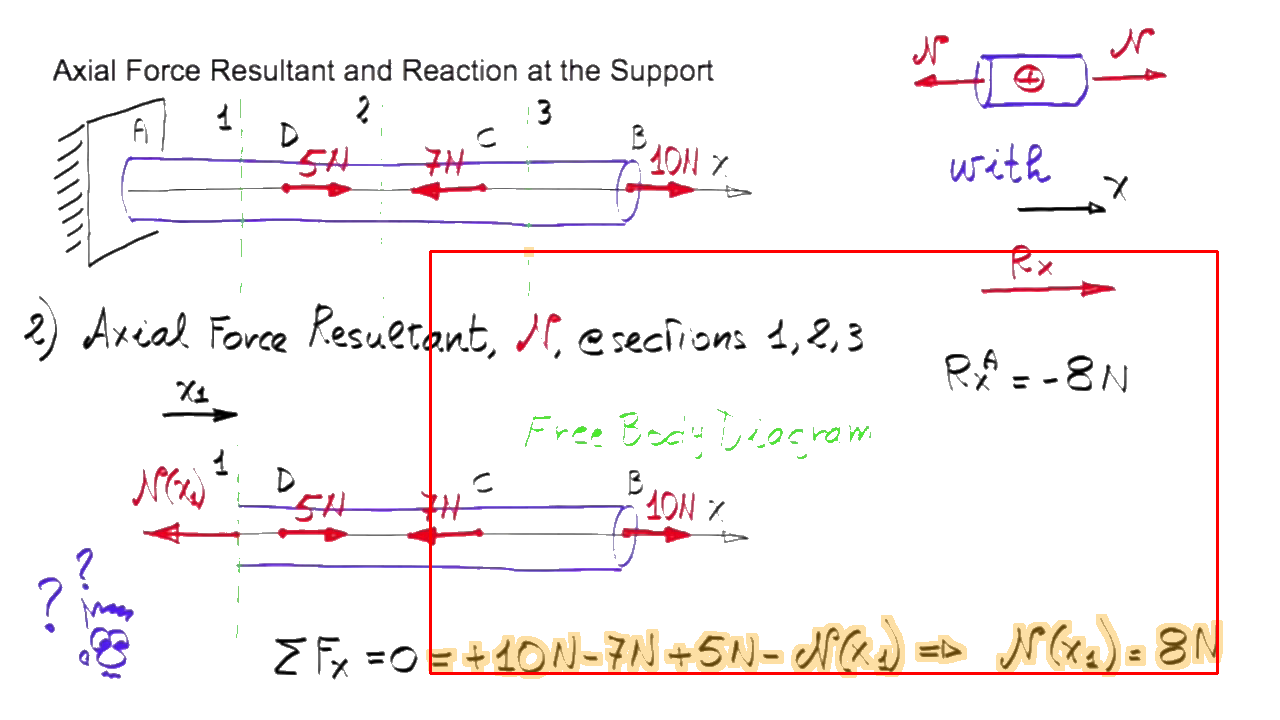 Axial Force Resultant and Reaction at the Support
N N
+
A 1 D 2 C 3 B
5N 7N 10N x
with
x
Rx
2) Axial Force Resultant, N, @ sections 1, 2, 3
RxA = -8N
x1
Free Body Diagram
N(x1) 1 D 5N 7N C B 10N x
? ?
ΣFx = 0 = +10N - 7N + 5N - N(x1) => N(x1) = 8N